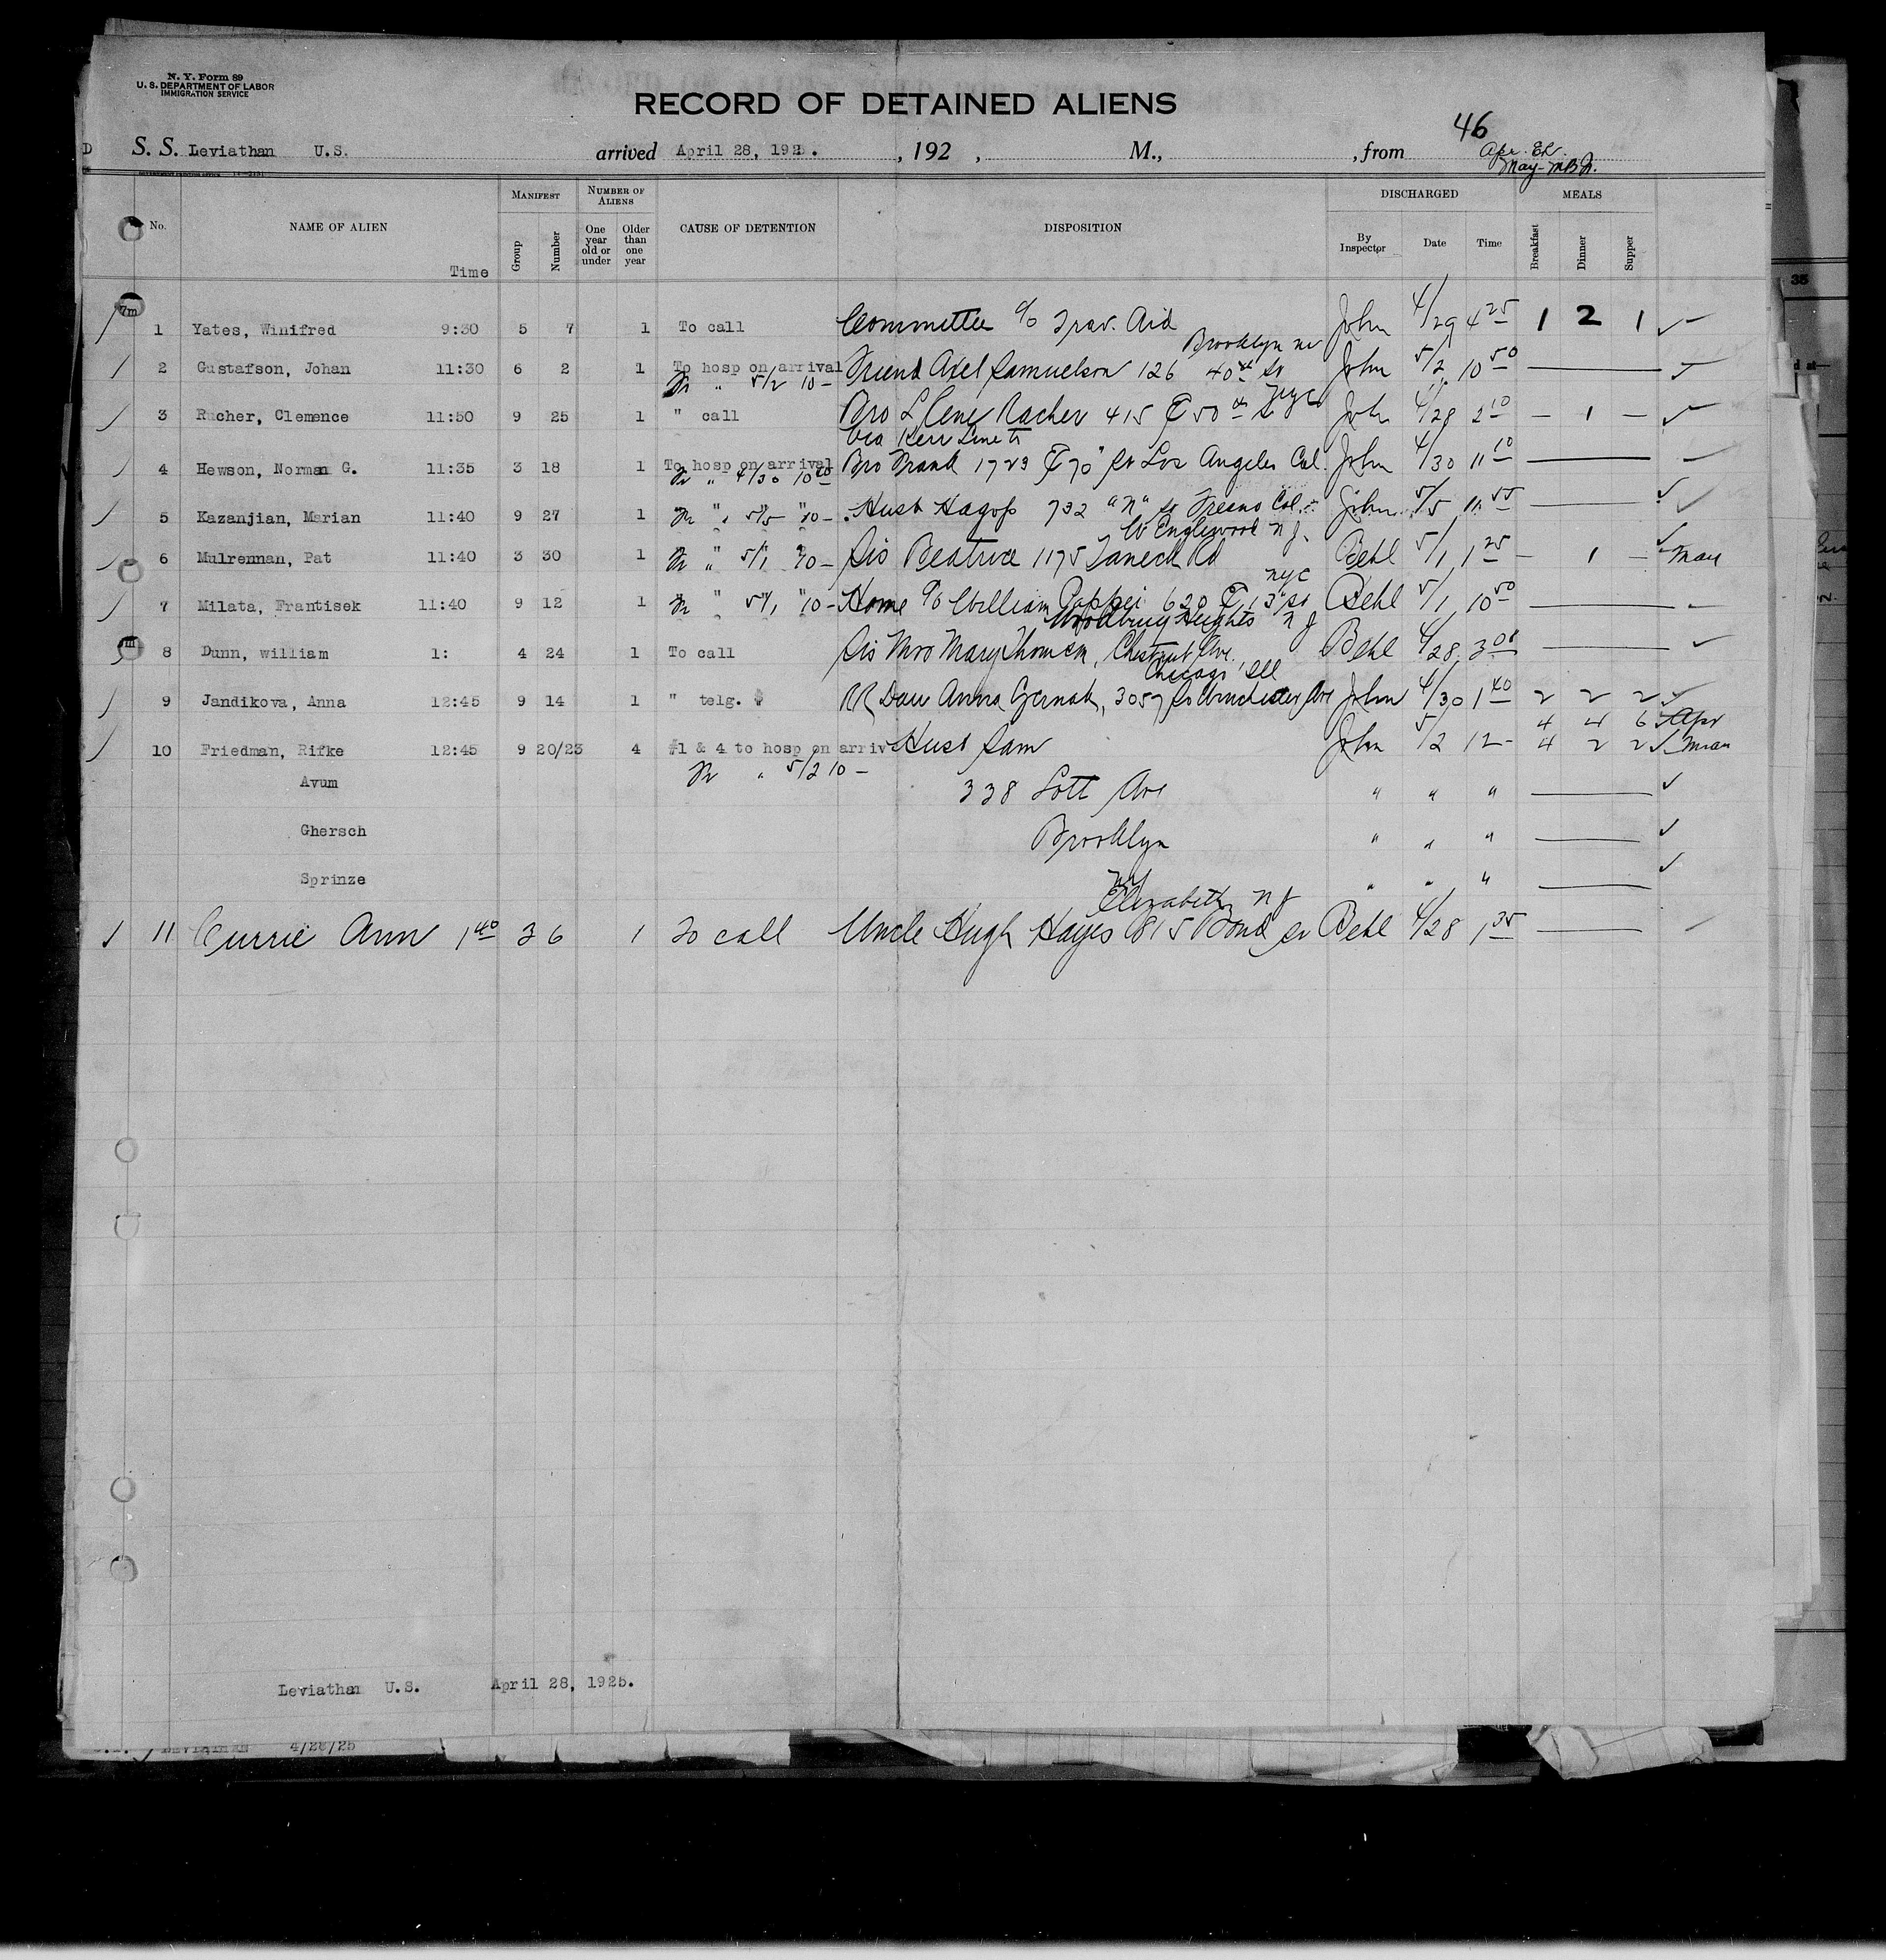 N. Y. Form 89
U. S. DEPARTMENT OF LABOR
IMMIGRATION SERVICE
RECORD OF DETAINED ALIENS
46
S. S. Leviathan U.S. arrived April 28, 1925. , 192 , M., , from Apr. EL.
May-
No. NAME OF ALIEN Time MANIFEST Group Number NUMBER OF ALIENS One year old or under Older than one year CAUSE OF DETENTION DISPOSITION DISCHARGED By Inspector Date Time MEALS Breakfast Dinner Supper
1 Yates, Winifred 9:30 5 7 1 To call Committee c/o Trav. Aid John 4/29 4 25 1 2 1
Brooklyn NY
2 Gustafson, Johan 11:30 6 2 1 To hosp on arrival Friend Axel Samuelson 126 40th St John 5/2 10 50
" 5/2 10 -
NYC
3 Rucher, Clemence 11:50 9 25 1 " call Bro L Cene Racher 415 E 50th St John 4/28 2 10 - 1 -
4 Hewson, Norman G. 11:35 3 18 1 To hosp on arrival Bro Frank 1723 E 70" St Los Angeles Cal. John 4/30 11 10
" 4/30 10 20
5 Kazanjian, Marian 11:40 9 27 1 " " 5/5 " 10 - Husb Hagop 732 "N" St Fresno Cal. John 5/5 11 55
W Englewood N J.
6 Mulrennan, Pat 11:40 3 30 1 " 5/1 10 - Sis Beatrice 1175 Taneck Rd Behl 5/1 1 25 - 1 - May
NYC
7 Milata, Frantisek 11:40 9 12 1 " 5/1 " 10 - Home c/o William 620 E 13" St Behl 5/1 10 50
Woodbury Heights N J
8 Dunn, william 1: 4 24 1 To call Sis Mrs Mary Thomson, Chestnut Ave. Behl 4/28 3 05
Chicago, Ill
9 Jandikova, Anna 12:45 9 14 1 " telg. $ RR Dau Anna Cernak, 3057 So Winchester Ave John 4/30 1 40 2 2 2
4 4 6 Apr
10 Friedman, Rifke 12:45 9 20/23 4 #1 & 4 to hosp on arriv Husb Sam John 5/2 12- 4 2 2 May
" 5/2 10 -
Avum 338 Lott Ave " " "
Ghersch Brooklyn " " "
Sprinze NY " " "
Elizabeth N J
11 Currie Ann 1 40 3 6 1 To call Uncle Hugh Hayes 815 Bond St Behl 4/28 1 35
Leviathan U.S. April 28, 1925.
4/28/25